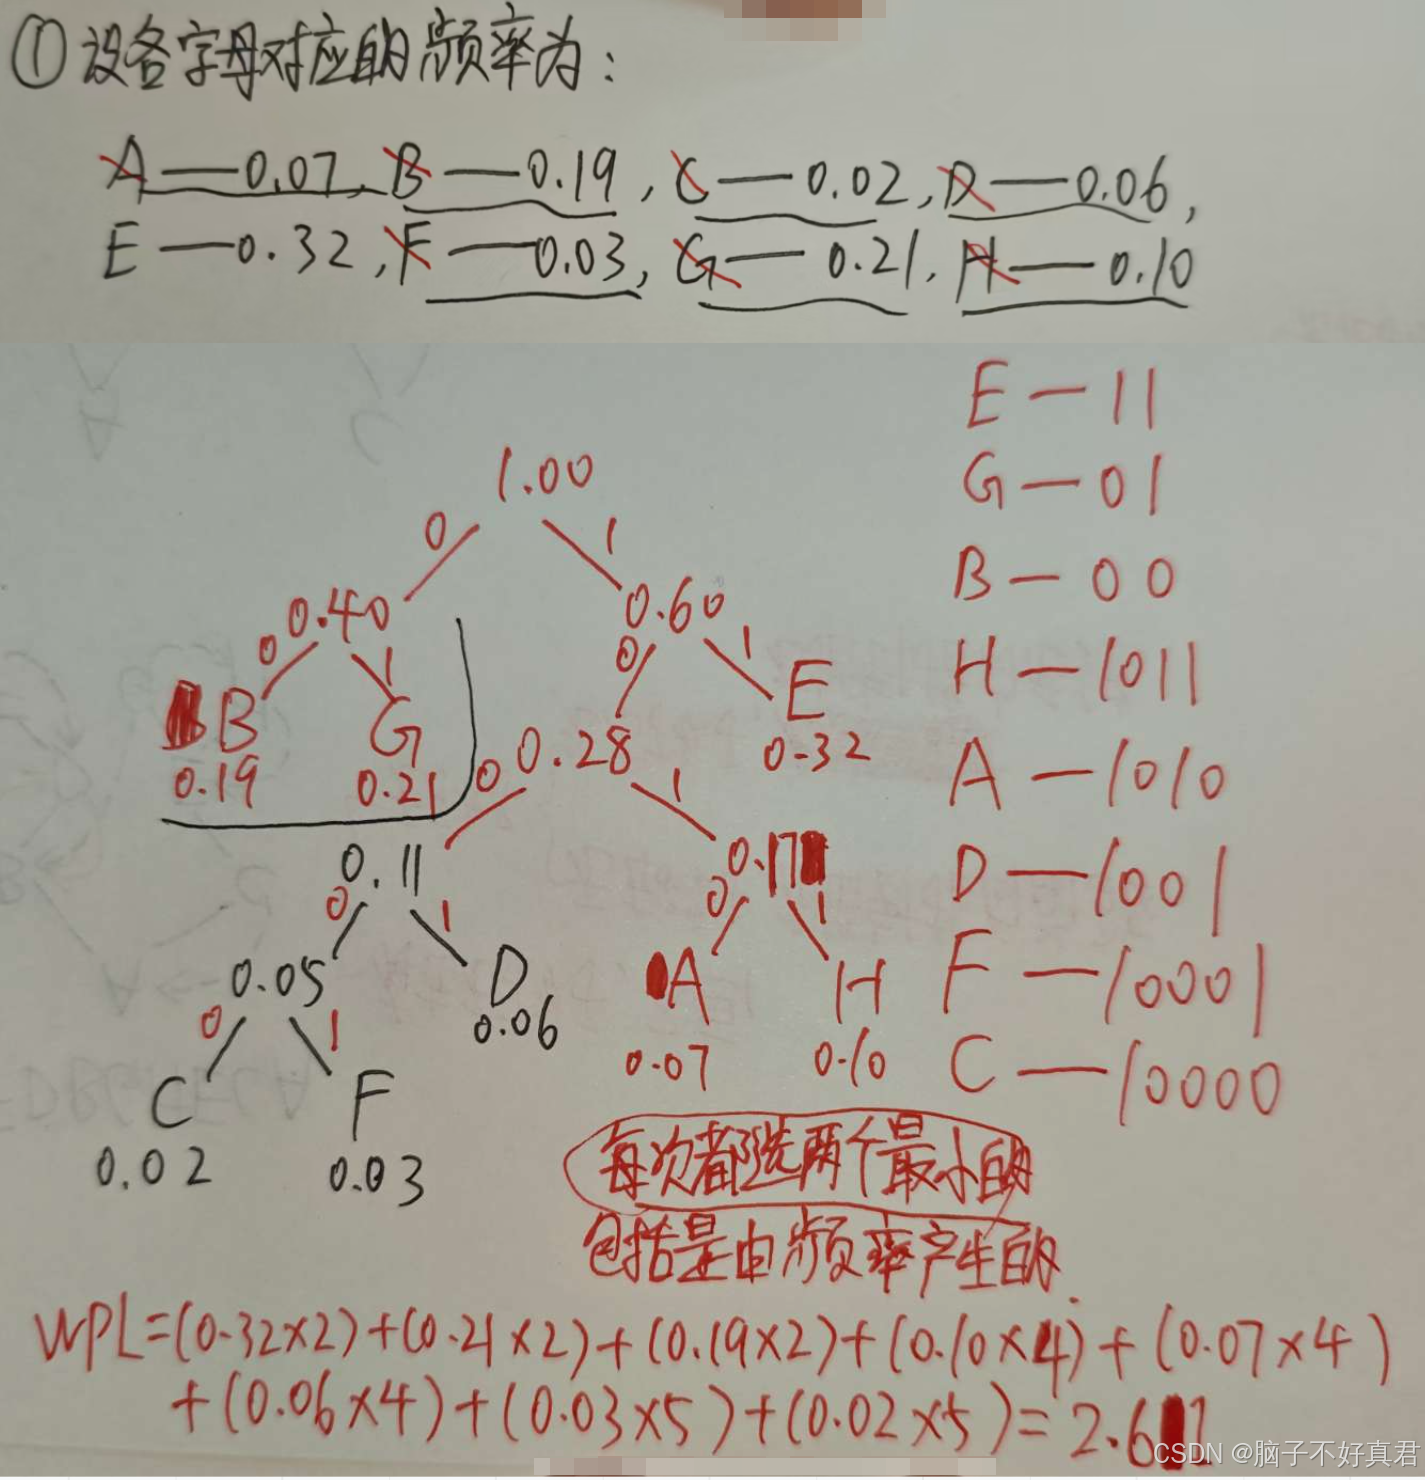 ①设各字母对应的频率为:
A—0.07, B—0.19, C—0.02, D—0.06,
E—0.32, F—0.03, G—0.21, H—0.10
E—11
G—01
B—00
H—1011
A—1010
D—1001
F—10001
C—10000
1.00
0 1
0.40 0.60
0 1 0 1
B G 0.28 E
0.19 0.21 0.32
0 1
0.11 0.17
0 1 0 1
0.05 D A H
0.06 0.07 0.10
0 1
C F
0.02 0.03
每次都选两个最小的
包括是由频率产生的.
WPL=(0.32×2)+(0.21×2)+(0.19×2)+(0.10×4)+(0.07×4)
+(0.06×4)+(0.03×5)+(0.02×5)=2.61
CSDN @脑子不好真君